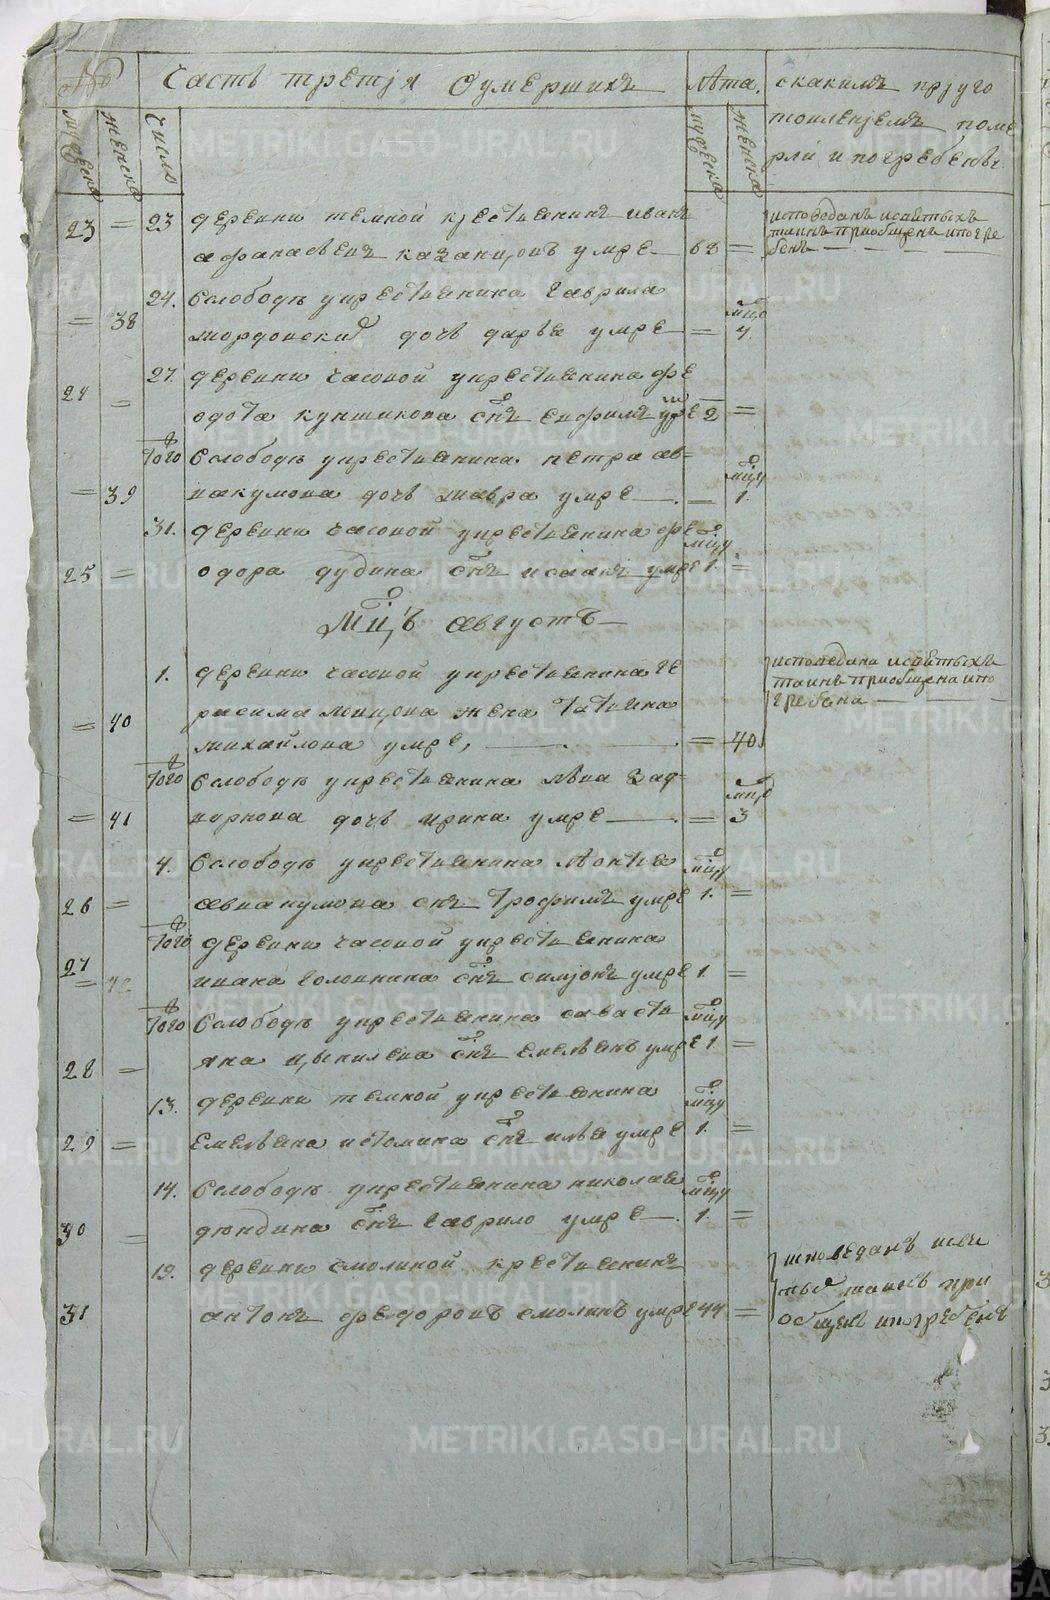 № Часть третія Оумершихъ Лѣта. скакимъ пріуго
тоиленіемъ поме
рли и погребены.
мужеска женска число мужеска женска
23 = 23 деревни темной крестьянинъ иванъ
афанасьевъ казанцовъ умре 68 =
исповеданъ исвятыхъ
таинъ приобщенъ ипогре
бенъ
24. Слободы укрестьянина гаврила
= 38 мордовски дочь дарья умре = мцо 4.
27. деревни часовой укрестьянина фе
24 = одота кунщикова снъ ефимъ умре 2 =
того Слободы укрестьянина петра ав=
= 39 вакумова дочь мавра умре = мцу 1.
31. деревни часовой укрестьянина фе мцу
25 = одора дудина снъ исаакъ умре 1. =
Мцъ августъ
1. деревни часовой укрестьянина ге
= 40 расима ловцова жена татьяна
михайлова умре, = 70
исповедана исвятыхъ
таинъ приобщена ипо
гребена
того Слободы укрестьянина лѣва зад=
= 41 ворнова дочь ирина умре = мцо 3
4. Слободы укрестьянина Леонтья мцу
26 = аввакумова снъ трофимъ умре 1. =
того деревни часовой укрестьянина
27 = ивана головнина снъ симіонъ умре 1. =
того Слободы укрестьянина савасти мцу
28 = яна цыпилева снъ емельянъ умре 1 =
13. деревни темной укрестьянина мцу
29 = Емельяна истомина снъ илья умре 1. =
14. Слободы укрестьянина николая мцу
30 = дюндина снъ гаврило умре 1. =
19. деревни смолиной крестьянинъ
31 антонъ федоровъ смолинъ умре 44 =
исповеданъ исвя
тых таинъ при
общенъ ипогребенъ
METRIKI.GASO-URAL.RU